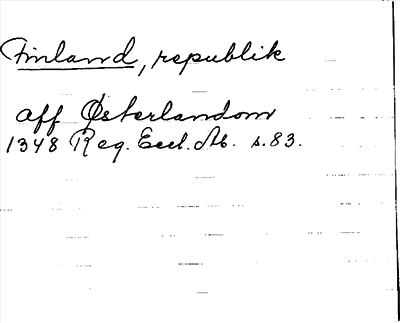 Finland, republik
aff Østerlandom
1348 Reg. Eccl. Ab. s. 83.